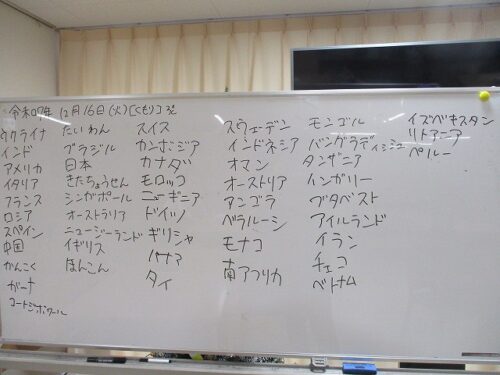 令和7年 12月16日(火)[くもり]
ウクライナ
インド
アメリカ
イタリア
フランス
ロシア
スペイン
中国
かんこく
ガーナ
コートジボワール
たいわん
ブラジル
日本
きたちょうせん
シンガポール
オーストラリア
ニュージーランド
イギリス
ほんこん
スイス
カンボジア
カナダ
モロッコ
ニューギニア
ドイツ
ギリシャ
パナマ
タイ
スウェーデン
インドネシア
オマン
オーストリア
アンゴラ
ベラルーシ
モナコ
南アフリカ
モンゴル
バングラディシュ
タンザニア
ハンガリー
ブタペスト
アイルランド
イラン
チェコ
ベトナム
イズベキスタン
リトアニア
ペルー